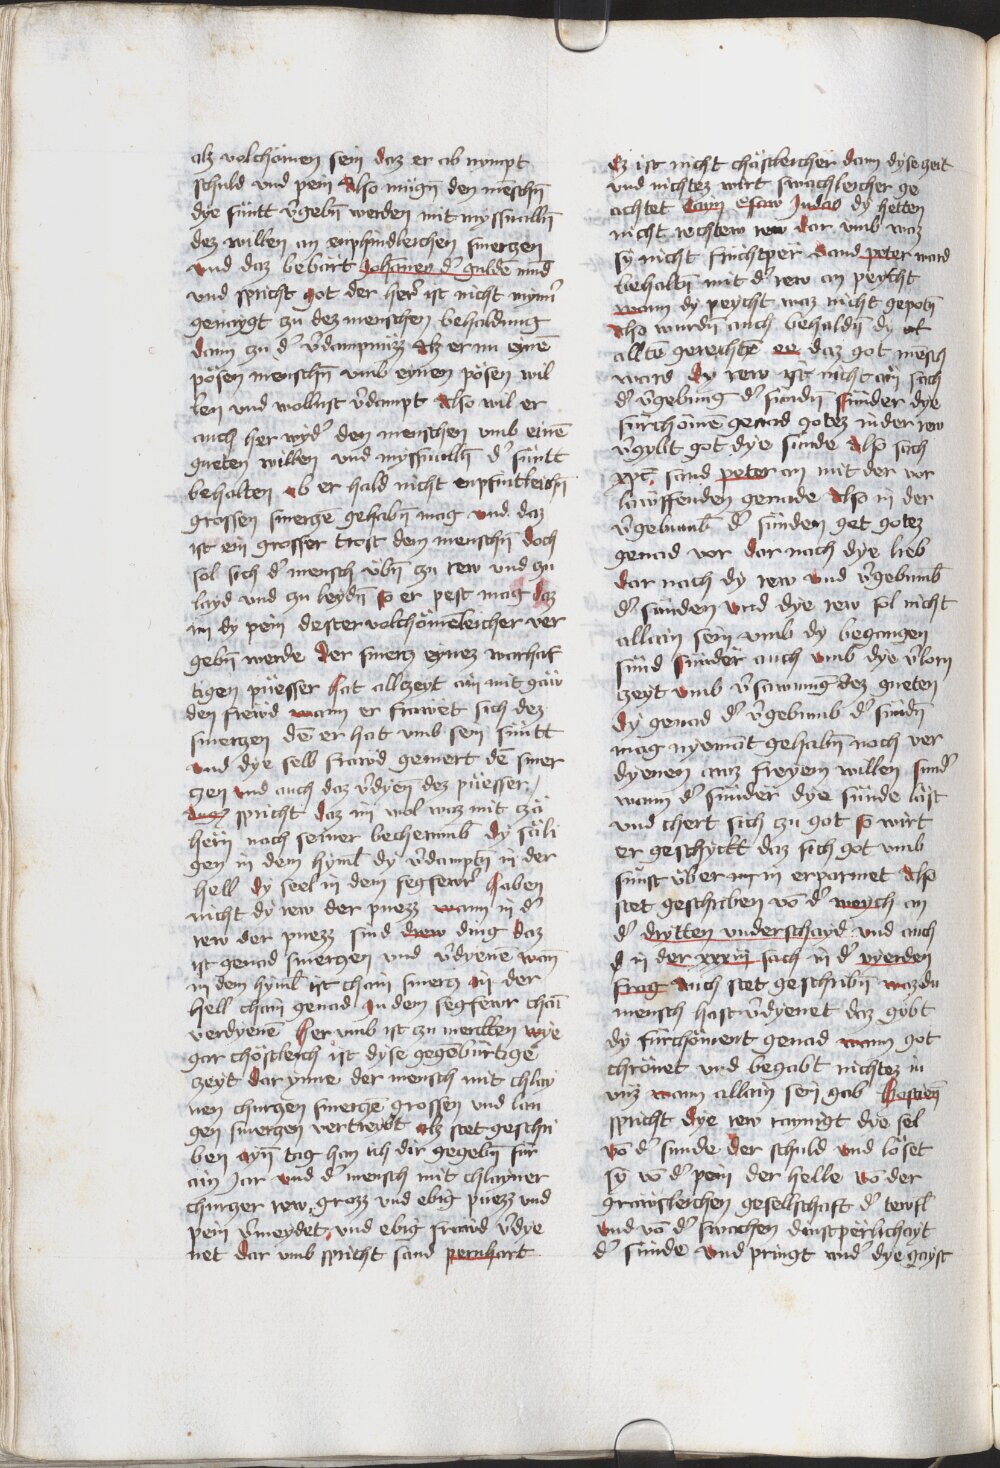 alz volchömen sein daz er ab nympt
schuld vnd pein Also mügn̄ den mēschn̄
dye süntt v̄gebn̄ werden mit myssualln̄
dez willen an enphindleichen smerczen
vnd daz bebärt Johannes d' guldē mūd
vnd spricht got der her' ist nicht mynn'
genaygt zu dez menschen behaldung
dann zu d' v̄dampnüzz Alz er nu eynē
pösen menschn̄ vmb eynen pösen wil
len vnd wollust v̄dampt Also wil er
auch her wyd' den menschen vmb einē
gueten willen vnd myssualln̄ d' süntt
behalten ob er hald nicht enpfintleichn̄
grossen smerczē gehabn̄ mag vnd daz
ist ein grosser trost dem menschn̄ doch
sol sich d' mensch v̈bn̄ zu rew vnd zu
layd vnd zu leydn̄ so er pest mag daz
im dy pein dester volchömēleicher ver
gebn̄ werde Der smercz eynez warhaf
tigen püesser hat allczeyt ain mit gäw
den frewd wann er frawet sich dez
smerczen dē er hat vmb sein süntt
vnd dye selb frawd gemert dē smer
czen vnd auch daz v̄dyen̄ dez püesser
Aug9 spricht daz im wol waz mit czä
hern nach seiner becherumb̄ dy säli
gen in dem hyml̄ dy v̄damptn̄ in der
hell dy seel in dem fegfewr̄ haben
nicht dy rew der puezz wann in d'
rew der puezz sind drew ding daz
ist genad smerczen vnd v̄dyenē wan̄
in dem hyml̄ ist chain smercz in der
hell chain genad In dem fegfewr chā
verdyenē her vmb ist zu merkken wye
gar chöstleich ist dyse gegēbürtige
czeyt dar ynne der mensch mit chlay
nen churczen smerczē grossen vnd lan
gen smerczen vertreybt alz stet geschri
ben ayn̄ tag han ich dir gegebn̄ für
ain Jar vnd d' mensch mit chlayner
churczer rew grozz vnd ebig puezz vnd
pein v̄meydet vnd ebig frawd v̄dye
net dar vmb spricht sand pernhart
Ez ist nicht chöstleicher dann dyse zeit
vnd nichtez wirt swachleicher ge
achtet Cayn esaw Judas dy hetten
nicht rechtew rew dar vmb waz
sy nicht fruchtpër Sand peter ward
behaltn̄ mit d' rew an peycht
wann dy peycht waz nicht gepotn̄
Also wurdn̄ auch behaldn̄ dy
alltē gerechtē ee daz got mēsch
ward dy rew ist nicht ain sach
d' v̄gebung d' sündn̄ sünder dye
fürchömē genad gotez in der rew
v̄gybt got dye sünde Also sach
xpc̄ sand peter an mit der vor
lawffenden genade Also in der
v̄gebumb̄ d' sünden get gotez
genad vor dar nach dye lieb
dar nach dy rew vnd v̄gebumb̄
d' sünden vnd dye rew sol nicht
allain sein vmb dy begangen
sünd sünder auch vmb dye v̄lorn
czeyt vmb v̄sawmūg dez gueten
dy genad d' v̄gebumb d' sündn̄
mag nyemāt gehabn̄ noch ver
dyenen auz freyem willen sünd'
wann d' sünder dye sünde läst
vnd chert sich zu got so wirt
er geschykt daz sich got vmb
sünst v̈ber in erparmet Also
stet geschriben vō d' weych an
d' drytten vnderschayd vnd auch
in der xxxiii sach in d' vyerden
frag Auch stet geschribn̄ waz du
mensch hast v̄dyenet daz gybt
dy fürchöment genad wann got
chrönet vnd begabt nichtez in
vnz wann allain sein gab
spricht dye rew raynigt dye sel
vō d' sunde der schuld vnd löset
sy vō d' pein der helle vō der
grawsleichen gesellschaft d' tewfl̄
vnd vō d' swachen dinstperlichayt
d' sünde vnd pringt wid' dye gayst